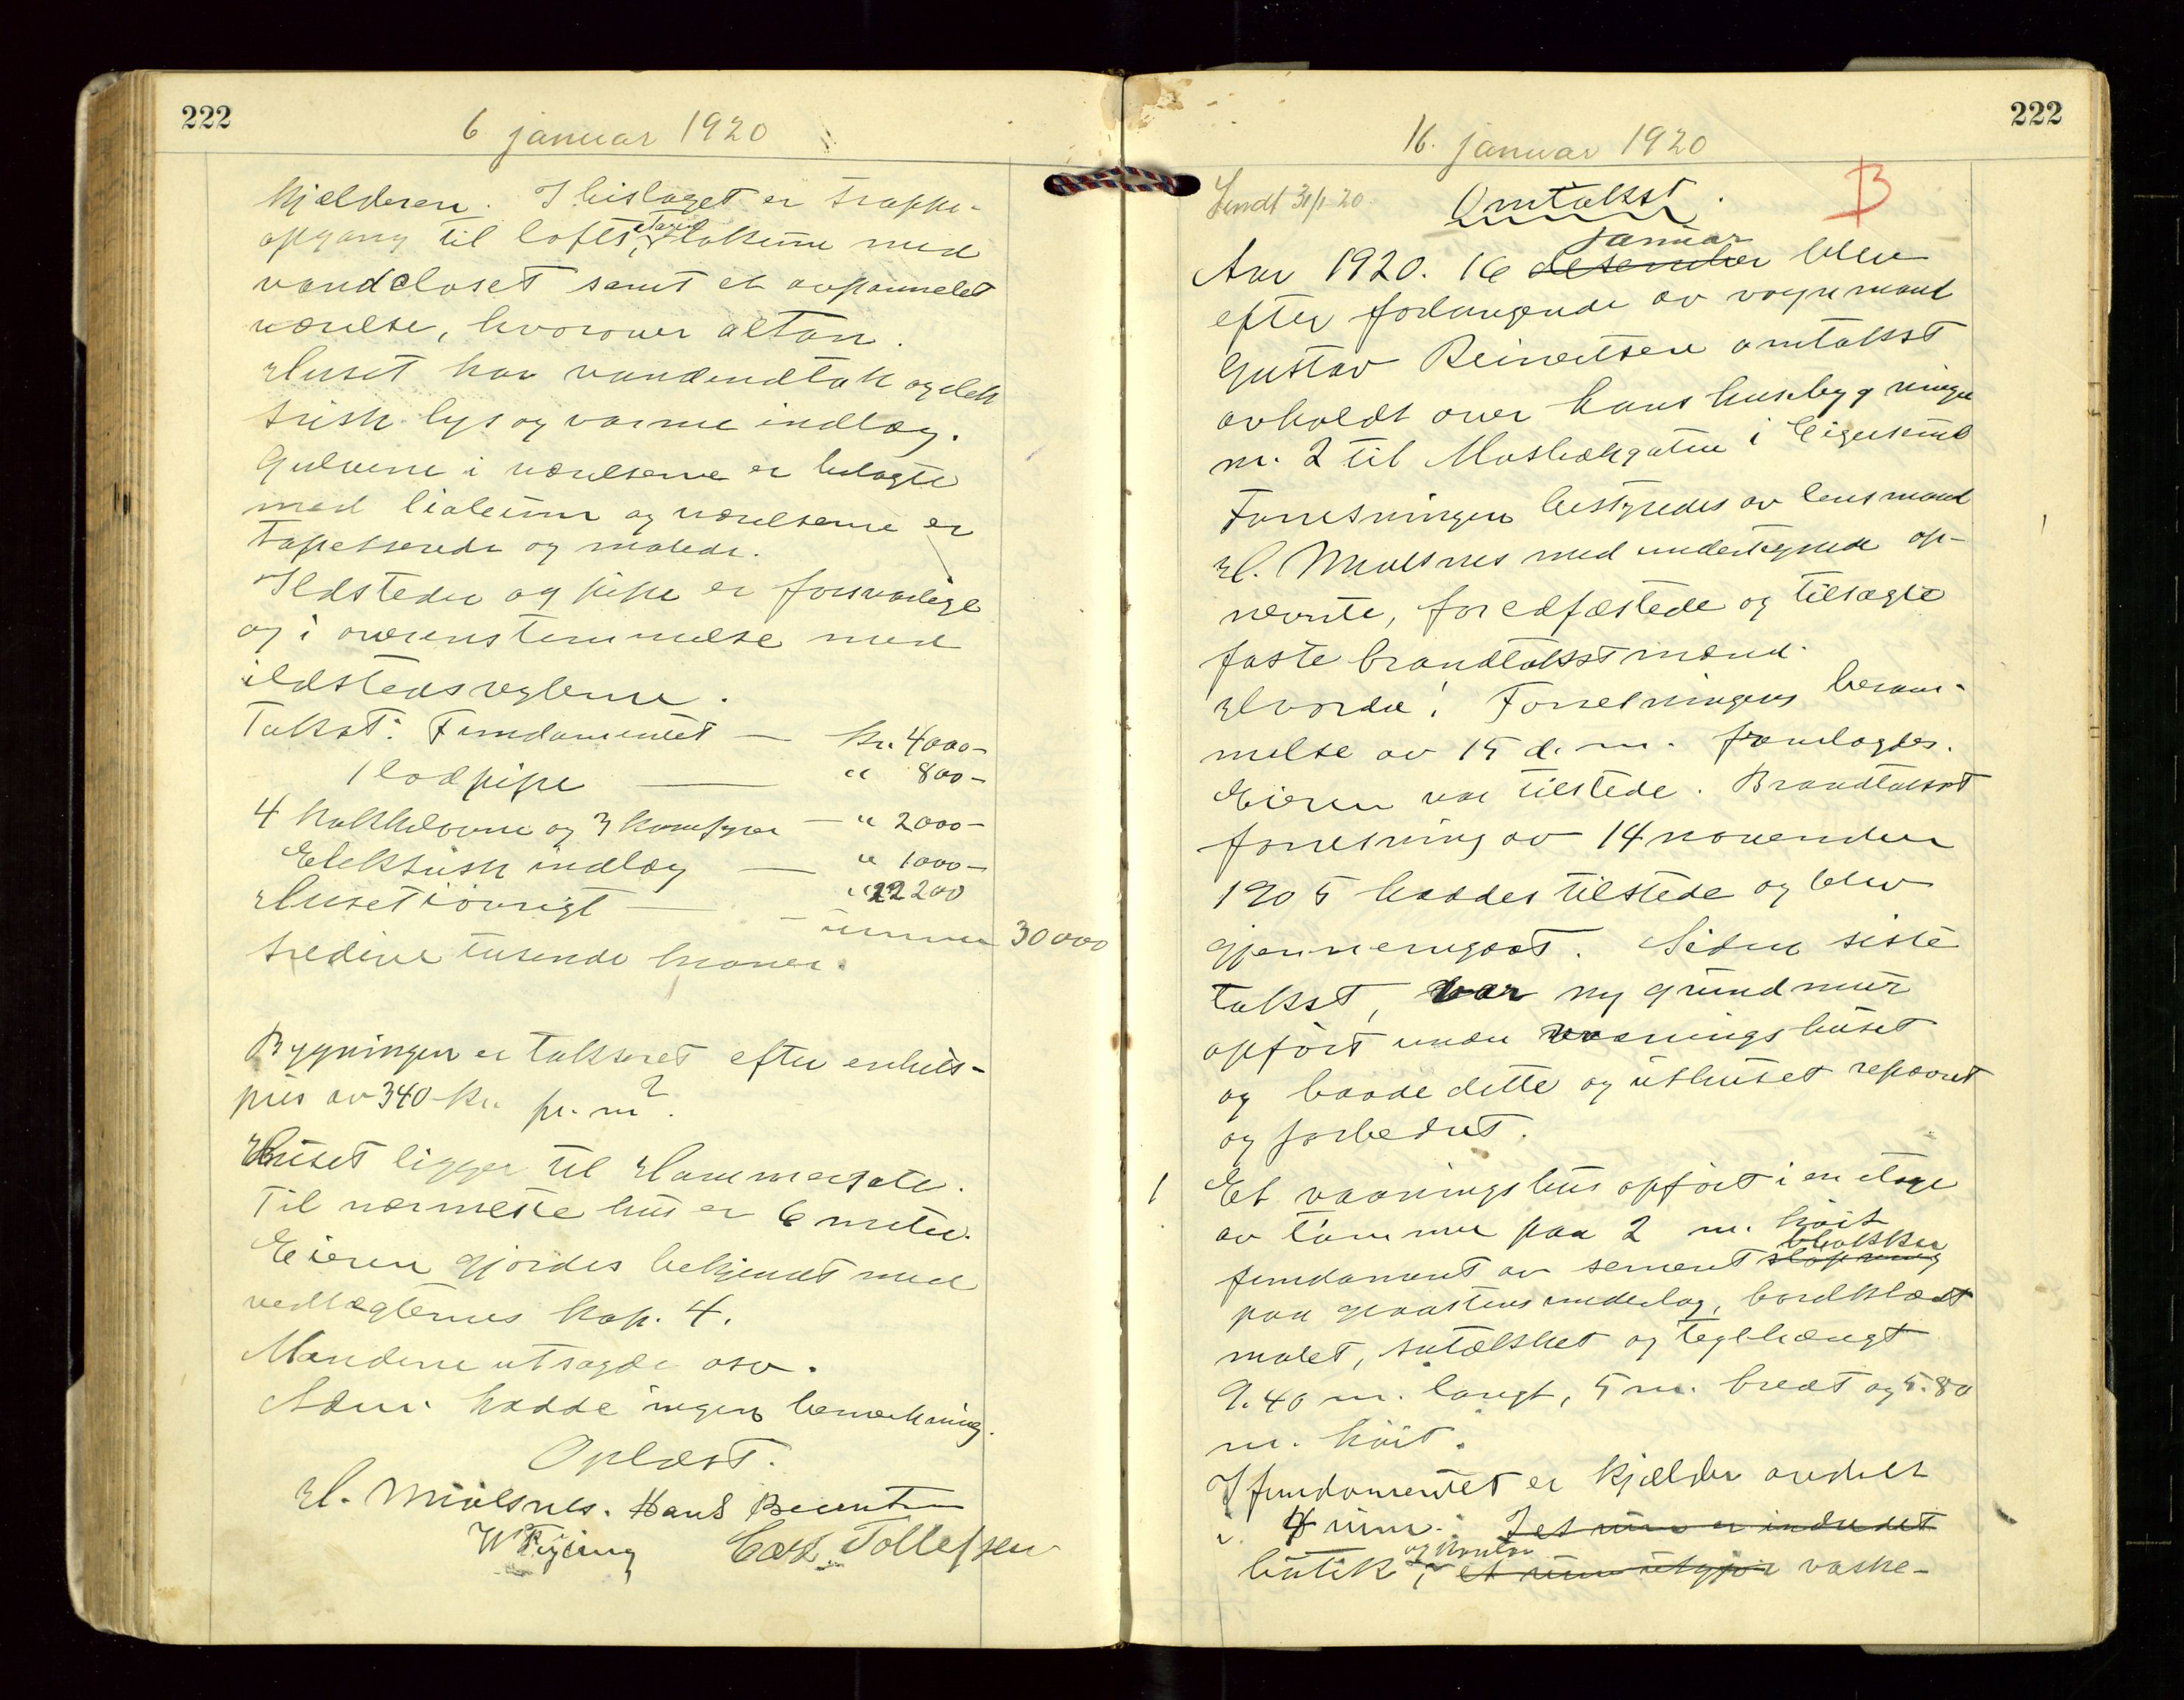 222
6 januar 1920
kjælderen. I bislaget er trappe-
opgang til lofts etagen, lokume med
vandcloset samt et avpannelet
værelse, hvorover altan.
Huset har vandindtak og elek
trisk lys og varme indlæg.
Gulvene i værelserne er belagte
med linoleum og værelserne er
tapetserede og malede.
Ildsteder og pipe er forsvarlige
og i overensstemmelse med
ildstedsreglerne.
Takst: Fundamentet — Kr. 4000-
1 lodpipe — " 800-
4 kakkelovne og 3 komfyrer — " 2000-
Elektrisk indlæg — " 1000-
Huset iøvrigt — " 22200
summa 30000
tredive tusende kroner.
Bygningen er taksert efter enhets-
pris av 340 kr. pr. m².
Huset ligger til Hammergate.
Til nærmeste hus er 6 meter.
Eieren gjordes bekjendt med
vedtægternes kap. 4.
Mændene utsagde osv.
Adm. hadde ingen bemerkning.
Oplæst.
H. Mialsnes. Hans Berentsen
W Feyling Carl Tollefsen
222
16. januar 1920
Sendt 31/1 20.
Omtakst.
B
Aar 1920. 16 desember januar blev
efter forlangende av vognmand
Gustav Reinertsen omtakst
avholdt over hans husbygninger
nr. 2 til Mosbækgaten i Eigersund
Forretningen bestyredes av lensmand
H. Mialsnes med undertegnede op-
nævnte, foredfæstede og tilsagte
faste brandtakstmænd.
Hvorda! Forretningens beram-
melse av 15 d. m. fremlagdes.
Eieren var tilstede. Brandtakst
forretning av 14 november
1905 haddes tilstede og blev
gjennemgaat. Siden siste
takst, var ny grundmur
opført under vaaningshuset
og baade dette og uthuset reparert
og forbedret.
1 Et vaaningshus opført i en etage
av tømmer paa 2 m. høit
fundament av sement støpning blokker
paa graastens underlag, bordklædt
malet, sutækket og teglhængt
9.40 m. langt, 5 m. bredt og 5.80
m. høit.
I fundamentet er kjælder avdelt
i 4 rum. I et rum er indredet
butik, og kontor et rum utgjør vaske-